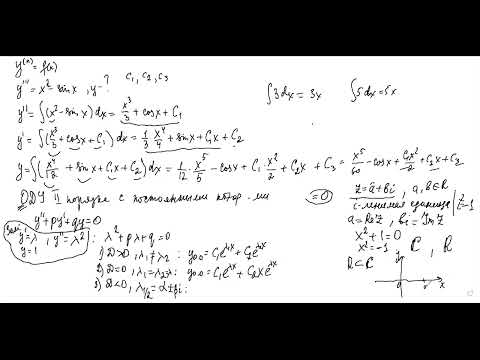 y⁽ⁿ⁾ = f(x)
y''' = x² - sin x , y - ? C₁, C₂, C₃
y'' = ∫(x² - sin x)dx = x³/3 + cos x + C₁
∫3dx = 3x ∫5dx = 5x
y' = ∫(x³/3 + cos x + C₁)dx = 1/3 x⁴/4 + sin x + C₁x + C₂
y = ∫(x⁴/12 + sin x + C₁x + C₂)dx = 1/12 · x⁵/5 - cos x + C₁ x²/2 + C₂x + C₃ = x⁵/60 - cos x + C₁x²/2 + C₂x + C₃
ОДУ II порядке с постоянными коэф-ми = 0
y'' + py' + qy = 0
y' = λ, y'' = λ²
y = 1
λ² + pλ + q = 0
1) D>0, λ₁ ≠ λ₂ : y₀₀ = C₁e^λ₁x + C₂e^λ₂x
2) D=0, λ₁ = λ₂ = λ : y₀₀ = C₁e^λx + C₂xe^λx
3) D<0, λ₁/₂ = α ± βi :
z = a + bi , a, b ∈ R
i - мнимая единица i² = -1
a = Re z , b = Im z
x² + 1 = 0
x² = -1
C , R
R ⊂ C
y
0
x